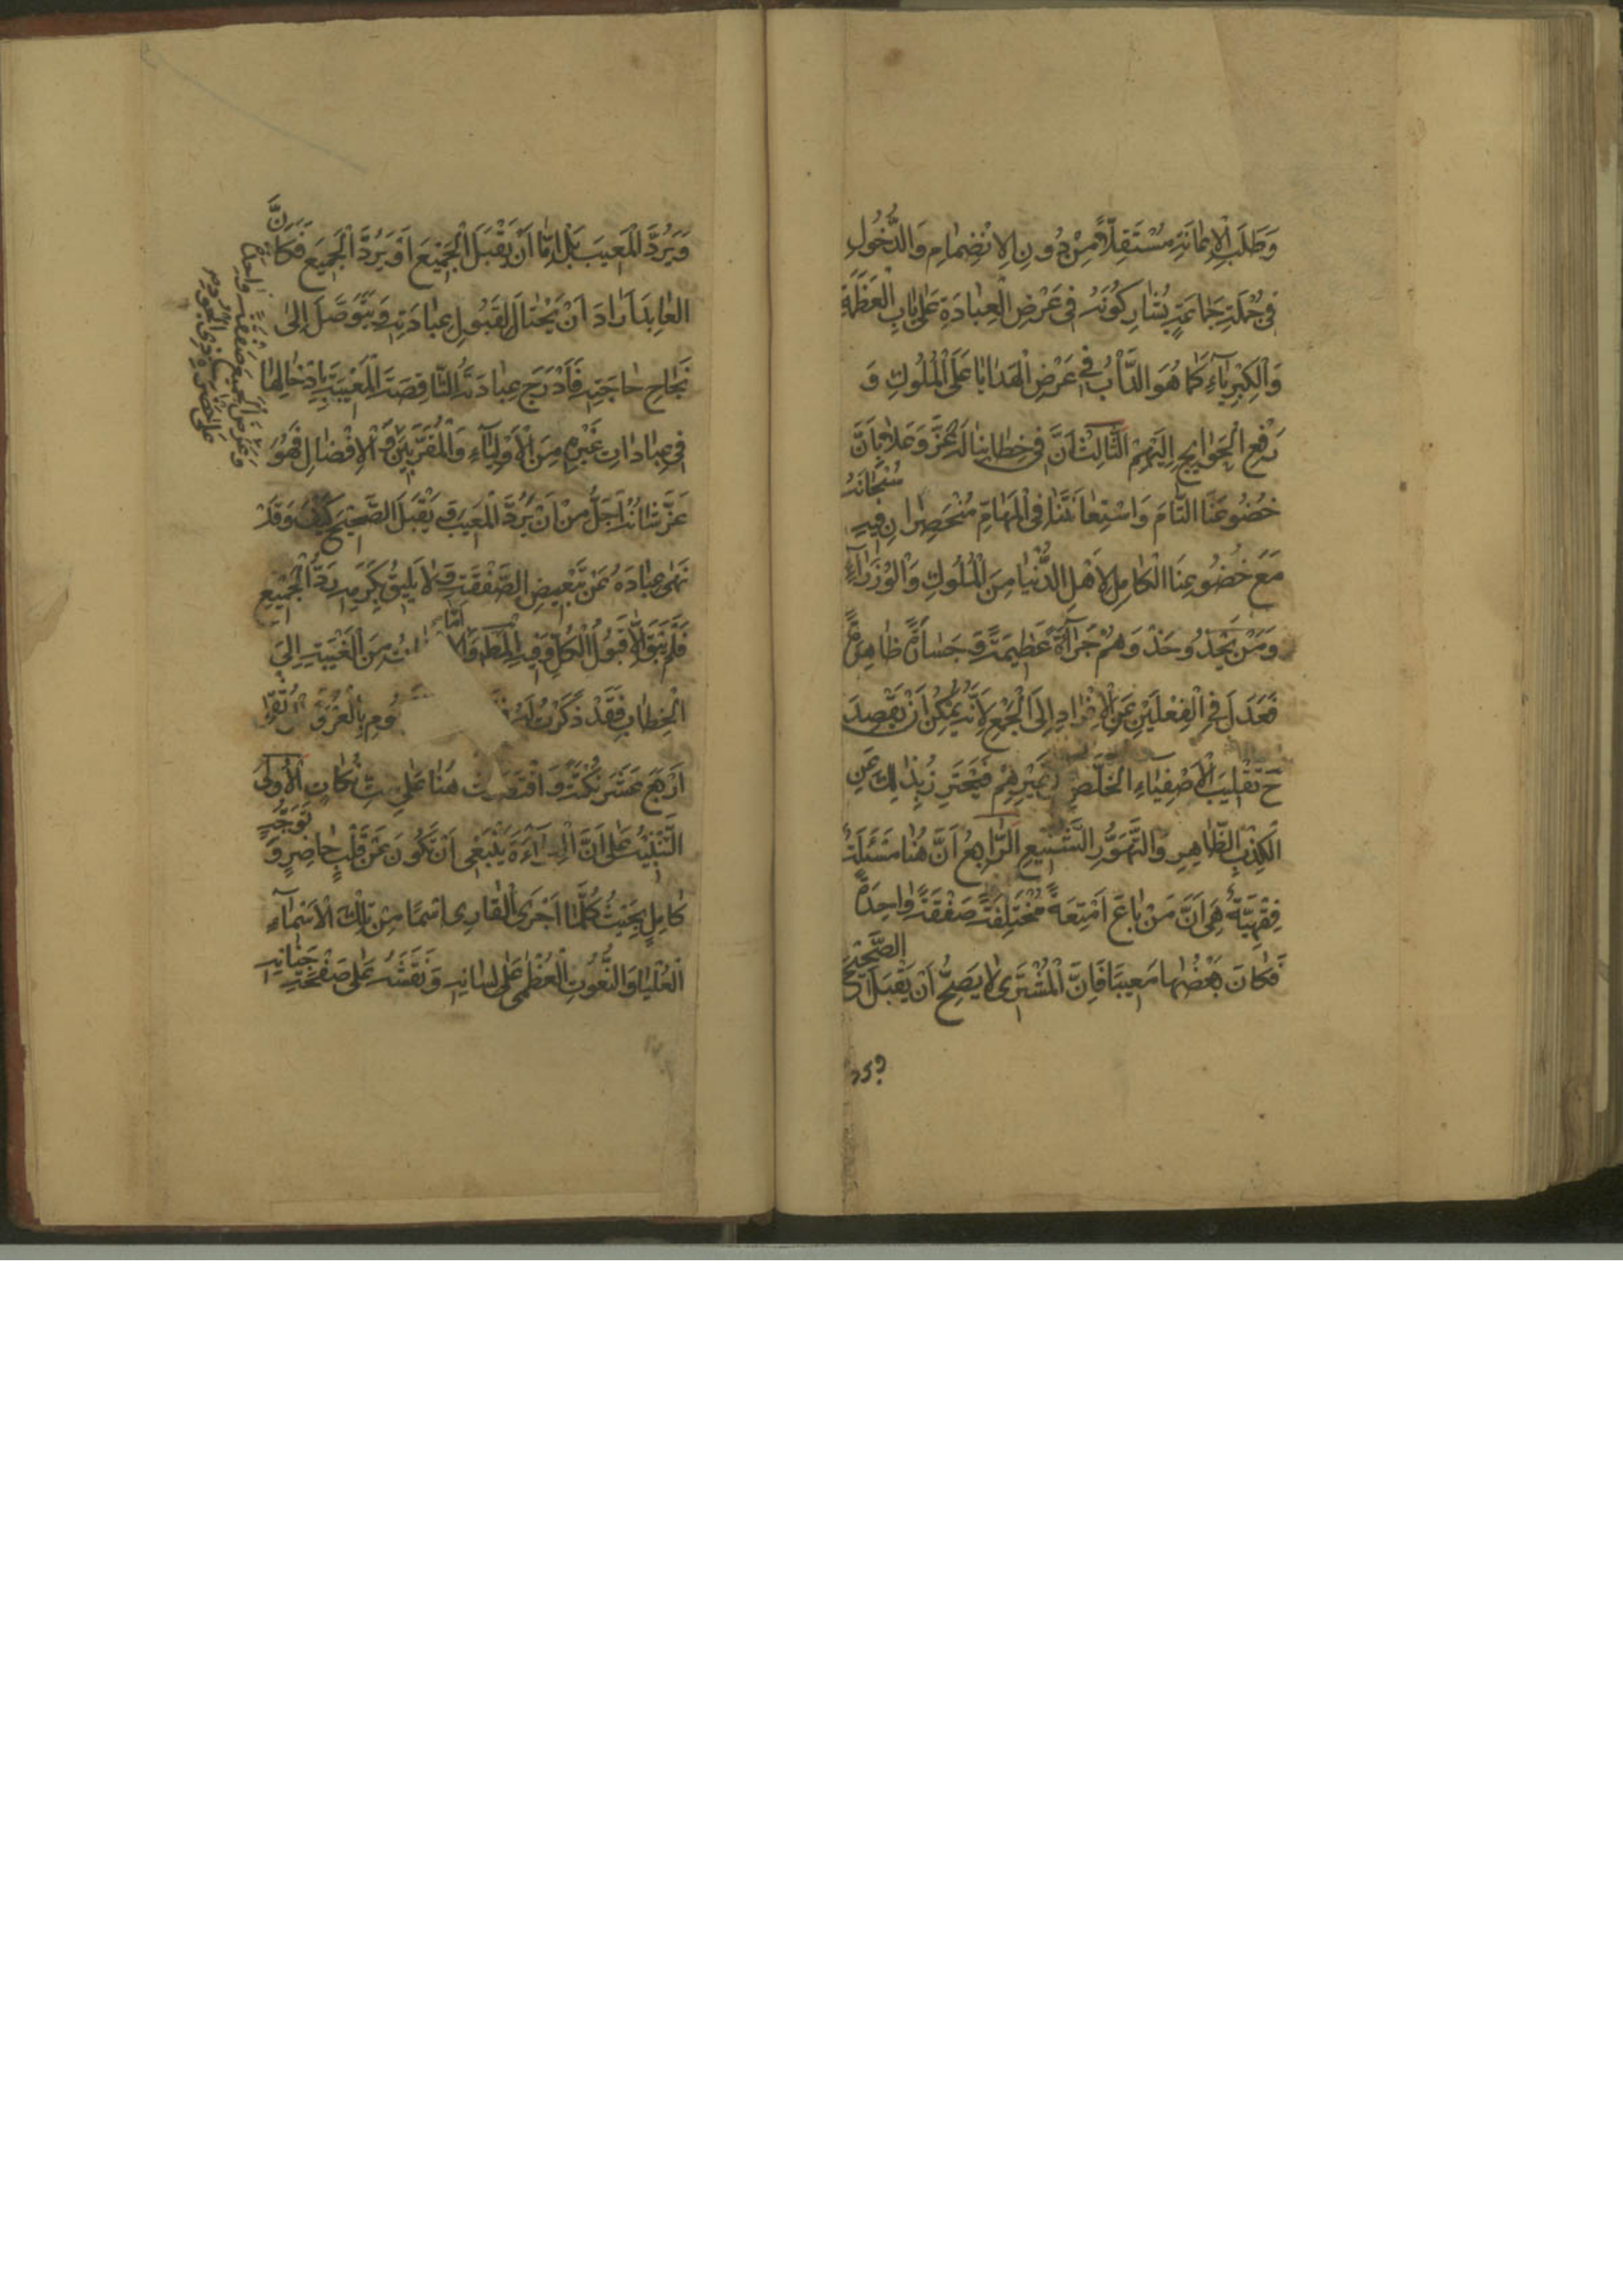 وَطَلَبِ الْاِعَانَةِ مُسْتَقِلًّا مِنْ دُونِ الْاِنْضِمَامِ وَالدُّخُولِ
فِي جُمْلَةِ جَمَاعَةٍ يُشَارِكُونَهُ فِي عَرْضِ الْعِبَادَةِ عَلَى بَابِ الْعَظَمَةِ
وَالْكِبْرِيَاءِ كَمَا هُوَ الدَّأْبُ فِي عَرْضِ الْهَدَايَا عَلَى الْمُلُوكِ وَ
رَفْعِ الْحَوَائِجِ اِلَيْهِمْ الثَّالِثُ اَنَّ فِي خِطَابِنَا لَهُ عَزَّ وَعَلَا بِاَنَّ
خُضُوعَنَا التَّامَّ وَاسْتِعَانَتَنَا فِي الْمَهَامِّ مُنْحَصِرَانِ فِيهِ سُبْحَانَهُ
مَعَ خُضُوعِنَا الْكَامِلِ لِاَهْلِ الدُّنْيَا مِنَ الْمُلُوكِ وَالْوُزَرَاءِ
وَمَنْ يَحْذُو حَذْوَهُمْ جُرْأَةً عَظِيمَةً وَجَسَارَةً ظَاهِرَةً
فَعَدَلَ فِي الْفِعْلَيْنِ عَنِ الْاِفْرَادِ اِلَى الْجَمْعِ لِاَنَّهُ يُمْكِنُ اَنْ يَقْصِدَ
ح تَغْلِيبَ الْاَصْفِيَاءِ الْخُلَّصِ غَيْرِهِمْ فَيَحْتَرِزُ بِذَلِكَ عَنِ
الْكِذْبِ الظَّاهِرِ وَالتَّهَوُّرِ الشَّنِيعِ الرَّابِعُ اَنَّ هُنَا مَسْئَلَةً
فِقْهِيَّةً هِيَ اَنَّ مَنْ بَاعَ اَمْتِعَةً مُخْتَلِفَةً صَفْقَةً وَاحِدَةً
فَكَانَ بَعْضُهَا مَعِيبًا فَاِنَّ الْمُشْتَرِي لَا يَصِحُّ اَنْ يَقْبَلَ الصَّحِيحَ
ويرد
وَيَرُدَّ الْمَعِيبَ بَلْ اِمَّا اَنْ يَقْبَلَ الْجَمِيعَ اَوْ يَرُدَّ الْجَمِيعَ فَكَاَنَّ
الْعَابِدَ اَرَادَ اَنْ يَحْتَالَ لِقَبُولِ عِبَادَتِهِ وَيَتَوَصَّلَ اِلَى
نَجَاحِ حَاجَتِهِ فَاَدْرَجَ عِبَادَتَهُ النَّاقِصَةَ الْمَعِيبَةَ بِاِدْخَالِهَا
فِي عِبَادَاتِ غَيْرِهِ مِنَ الْاَوْلِيَاءِ وَالْمُقَرَّبِينَ وَالْاِفْضَالِ فَهُوَ
وعرض الجميع صفقة واحدة
على حضرة ذي الجود
عَزَّ شَانُهُ اَجَلُّ مِنْ اَنْ يَرُدَّ الْمَعِيبَ وَيَقْبَلَ الصَّحِيحَ كَيْفَ وَقَدْ
نَهَى عِبَادَهُ عَنْ تَبْعِيضِ الصَّفْقَةِ وَلَا يَلِيقُ بِكَرَمِهِ رَدُّ الْجَمِيعِ
فَلَمْ يَبْقَ اِلَّا قَبُولُ الْكُلِّ وَفِيهِ الْمَط وَاَمَّا مِنَ الْغَيْبَةِ اِلَى
الْخِطَابِ فَقَدْ ذَكَرْتُ لَهُ بِالْعُرْوَةِ
اَرْبَعَ عَشَرَ نُكْتَةً وَاقْتَصَرْتُ هُنَا عَلَى سِتِّ نُكَاتٍ الْاُولَى
التَّنْبِيهُ عَلَى اَنَّ الْقِرَاءَةَ يَنْبَغِي اَنْ تَكُونَ عَنْ قَلْبٍ حَاضِرٍ وَتَوَجُّهٍ
كَامِلٍ بِحَيْثُ كُلَّمَا اَجْرَى الْقَارِي اسْمًا مِنْ تِلْكَ الْاَسْمَاءِ
الْعُلْيَا وَالنُّعُوتِ الْعُظْمَى عَلَى لِسَانِهِ وَنَقَشَهُ عَلَى صَفْحَةِ جَنَانِهِ